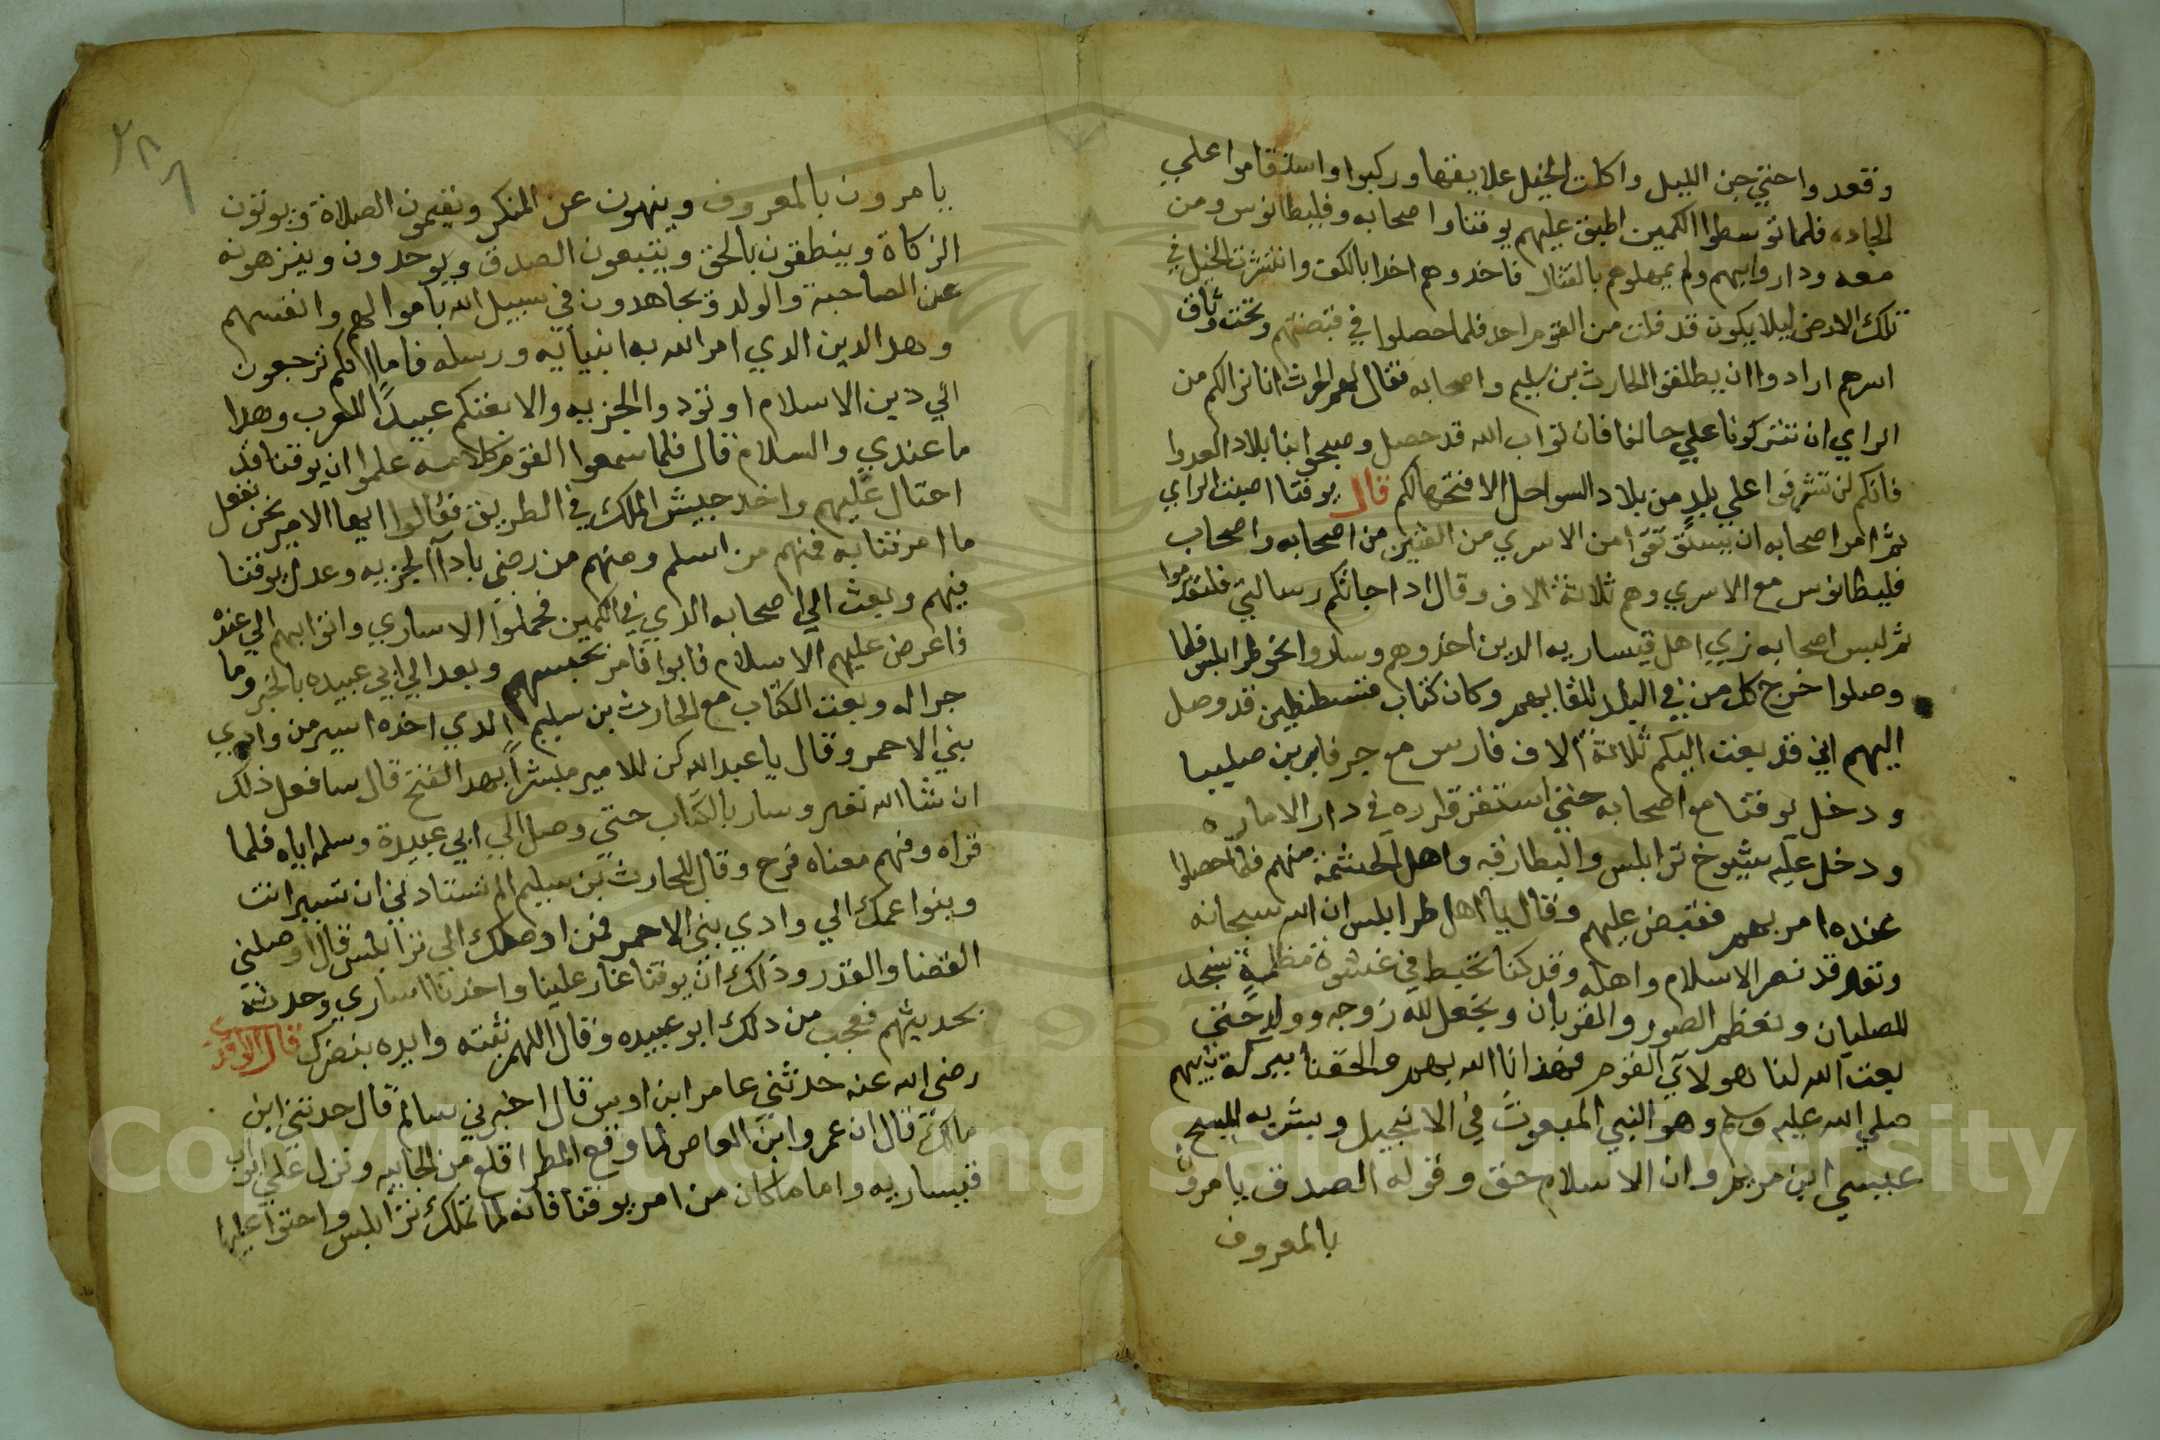 وقعدوا حتي جن الليل واكلت الخيل علايفها وركبوا واستقاموا علي
الجاده فلما توسطوا الكمين اطبق عليهم يوقنا واصحابه وفليطانوس ومن
معه وداروا بهم ولم يمهلوهم بالقتال فاخدوهم اخدا بالكف وانتشرت الخيل في
تلك الارض ليلا يكون قد فلت من القوم احد فلما حصلوا في قبضتهم وتحت وثاق
اسرهم ارادوا ان يطلقوا الحارث بن سليم واصحابه فقال لهم الحرث انا نرا لكم من
الراي ان تتركونا علي حالنا فان ثواب الله قد حصل وصبحوا بنا بلاد العدوا
فانكم لن تشرفوا علي بلد من بلاد السواحل الا فتحها لكم قال يوقنا اصبت الراي
ثم امر اصحابه ان يستوثقوا من الاسري من الفين من اصحابه واصحاب
فليطانوس مع الاسري وهم ثلاثة الاف وقال ادا جاتكم رسالتي فلتقدموا
ثم لبس اصحابه زي اهل قيساريه الدين اخدوهم وساروا نحو طرابلس فلما
وصلوا خرج كل من في البلد للقايهم وكان كتاب قسطنطين قد وصل
اليهم اني قد بعتت اليكم ثلاثة الاف فارس مع جرفاس بن صليبا
ودخل يوقنا مع اصحابه حتي استقر قراره في دار الاماره
ودخل عليه شيوخ ترابلس والبطارقه واهل الحشمة منهم فلما حصلوا
عنده امر بهم فقبض عليهم وقال يا اهل طرابلس ان الله سبحانه
وتعا قد نصر الاسلام واهله وقد كنا نخبط في غشوة مظلمة نسجد
للصلبان ونعظم الصور والقربان ونجعل لله زوجه وولد حتي
بعت الله لنا هولاي القوم فهدانا الله بهم والحقنا ببركة نبيهم
صلي الله عليه وسلم وهو النبي المبعوث في الانجيل وبشر به المسيح
عيسي ابن مريم وان الاسلام حق وقوله الصدق يامرون
بالمعروف
٢٨٦
يامرون بالمعروف وينهون عن المنكر ويقيمون الصلاة ويوتون
الزكاة وينطقون بالحق ويتبعون الصدق ويوحدون وينزهونه
عن الصاحبة والولد ويجاهدون في سبيل الله باموالهم وانفسهم
وهدا الدين الدي امر الله به انبيايه ورسله فاما انكم ترجعون
الي دين الاسلام او تودوا الجزيه والا بعتكم عبيدا للعرب وهدا
ما عندي والسلام قال فلما سمعوا القوم كلامه علموا ان يوقنا قد
احتال عليهم واخد جيش الملك في الطريق فقالوا ايها الامير نحن نفعل
ما امرتنا به فمنهم من اسلم ومنهم من رضي بادآ الجزيه وعدل يوقنا
فيهم وبعث الي اصحابه الذي في الكمين فحملوا الاساري واتوا بهم الي عنده
فاعرض عليهم الاسلام فابوا فامر بحبسهم وبعد الي ابي عبيده بالخبر وما
جرا له وبعت الكتاب مع الحارث بن سليم الدي اخده اسير من وادي
بني الاحمر وقال يا عبد الله كن للامير مبشرا بهدا الفتح قال سافعل ذلك
ان شا الله تعا وسار بالكتاب حتي وصل الي ابي عبيدة وسلمه اياه فلما
قراه وفهم معناه فرح وقال للحارث بن سليم الم تستادني ان تسير انت
وبنوا عمك الي وادي بني الاحمر فمن اوصلك الي ترابلس قال اوصلني
القضا والقدر وذلك ان يوقنا غار علينا واخدنا اساري وحدثه
بحديثهم فعجب من دلك ابو عبيده وقال اللهم ثبته وايده بنصرك قال الواقدي
رضي الله عنه حدثني عامر ابن اوس قال اخبرني سالم قال حدتني ابن
مالك قال ان عمروا ابن العاص لما وقع المطر اقلع من الجابيه ونزل علي ابواب
قيساريه واما ما كان من امر يوقنا فانه لما تملك ترابلس واحتوا عليها